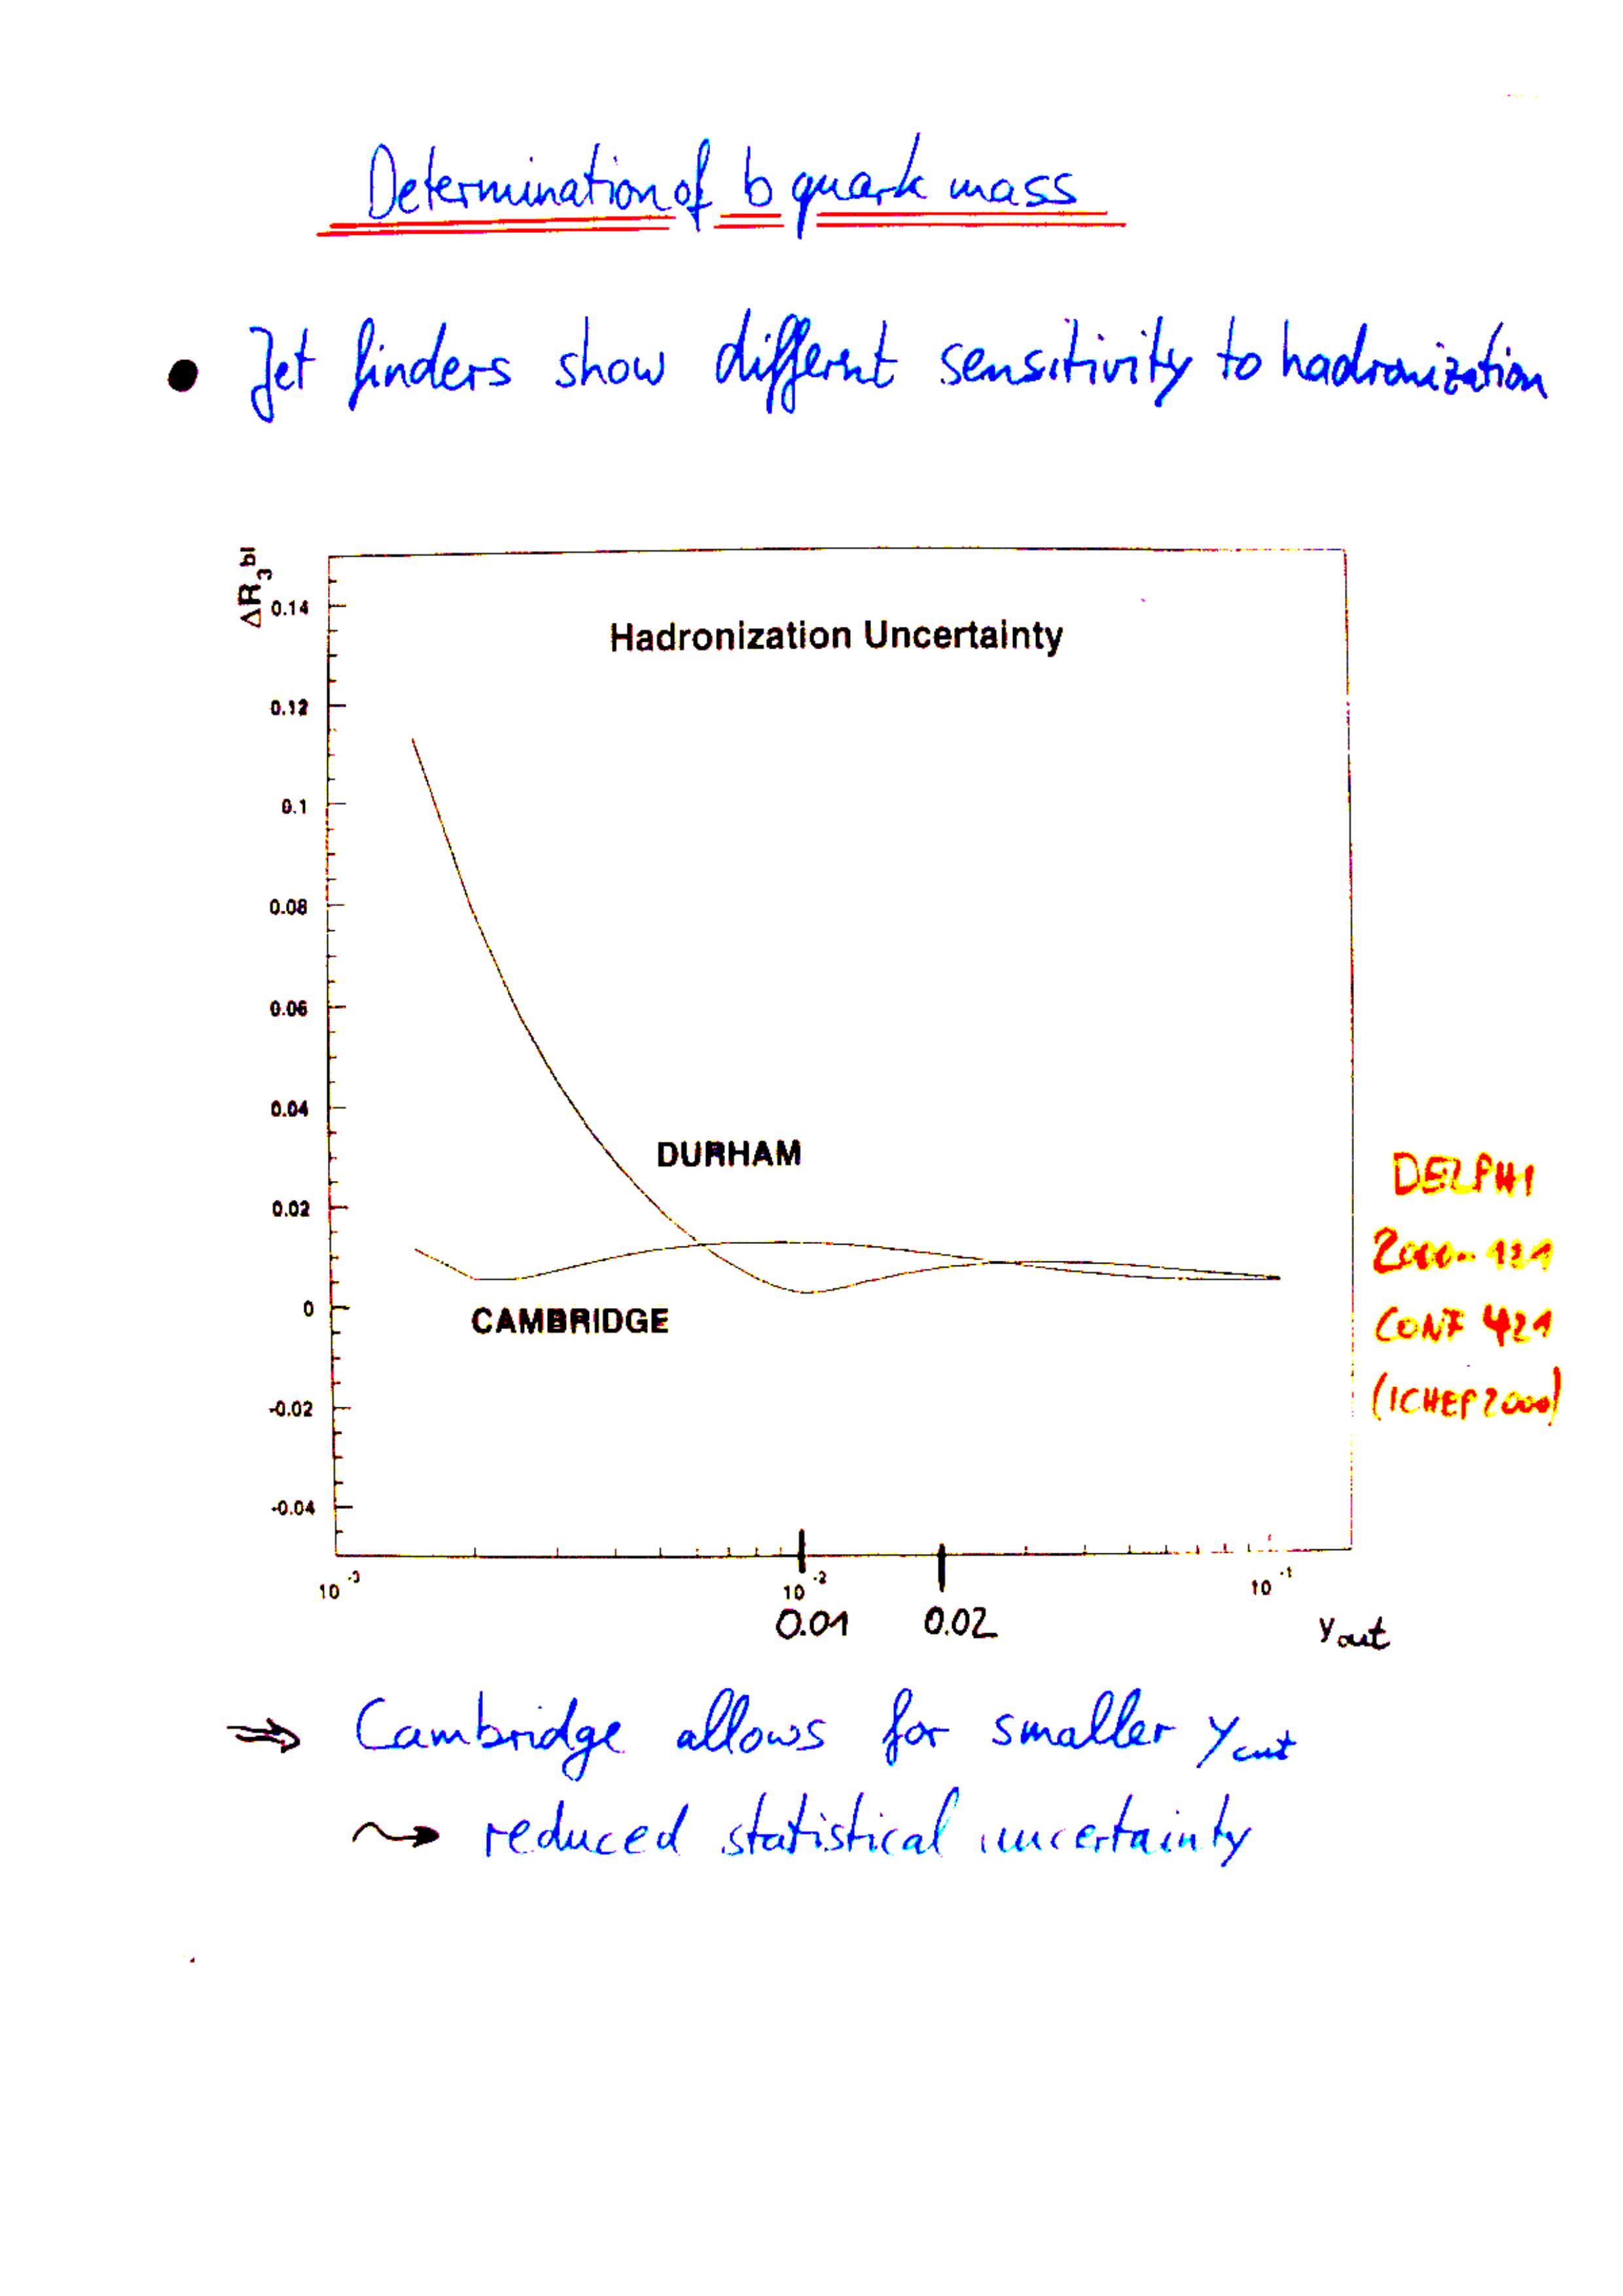 Determination of b quark mass
• Jet finders show different sensitivity to hadronization
ΔR₃ᵇˡ
Hadronization Uncertainty
0.14
0.12
0.1
0.08
0.06
0.04
0.02
0
-0.02
-0.04
DURHAM
CAMBRIDGE
DELPHI
2000-131
CONF 421
(ICHEP 2000)
10⁻³ 10⁻² 10⁻¹
0.01 0.02 y cut
⇒ Cambridge allows for smaller y cut
⇝ reduced statistical uncertainty